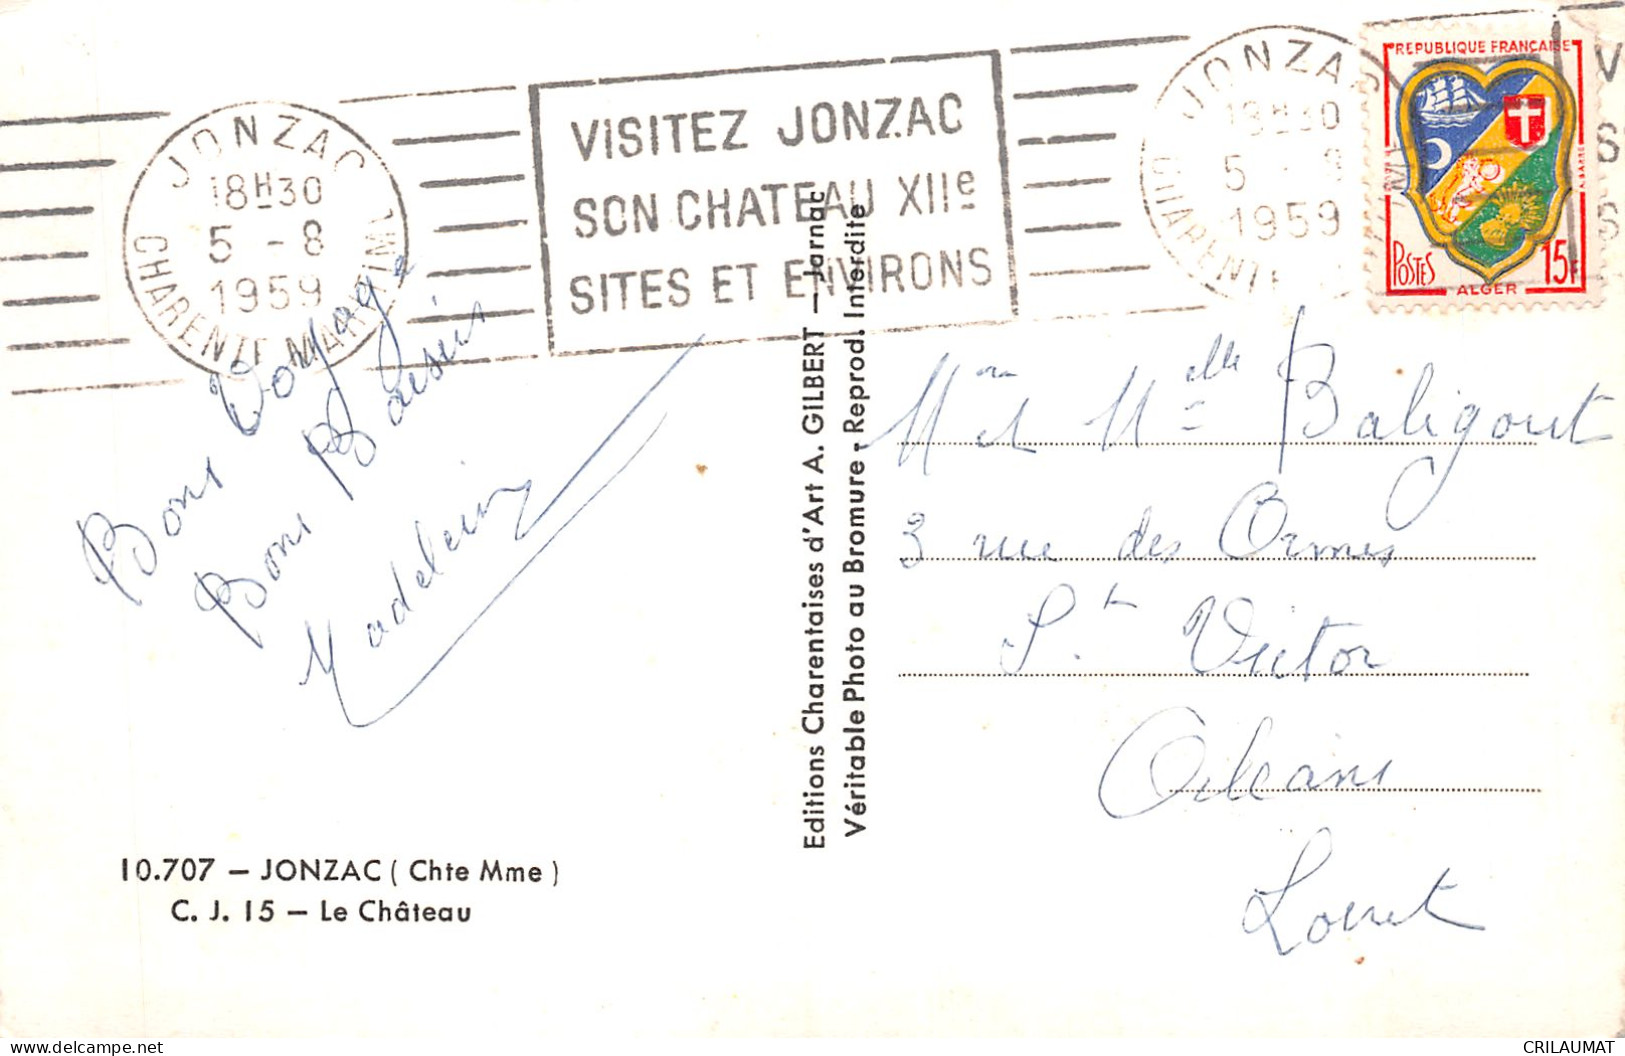 JONZAC
18H30
5 - 8
1959
CHARENTE MARITIME
VISITEZ JONZAC
SON CHATEAU XIIe
SITES ET ENVIRONS
JONZAC
18H30
5 - 8
1959
CHARENTE
REPUBLIQUE FRANÇAISE
POSTES
15F
ALGER
V
S
S
Bons Voyage
Bons Baisers
Madeleine
Editions Charentaises d'Art A. GILBERT – Jarnac
Véritable Photo au Bromure - Reprod. Interdite
Mme et Melle Baligout
3 rue des Ormes
St Victor
Orleans
Loiret
10.707 – JONZAC ( Chte Mme )
C. J. 15 – Le Château
CRILAUMAT